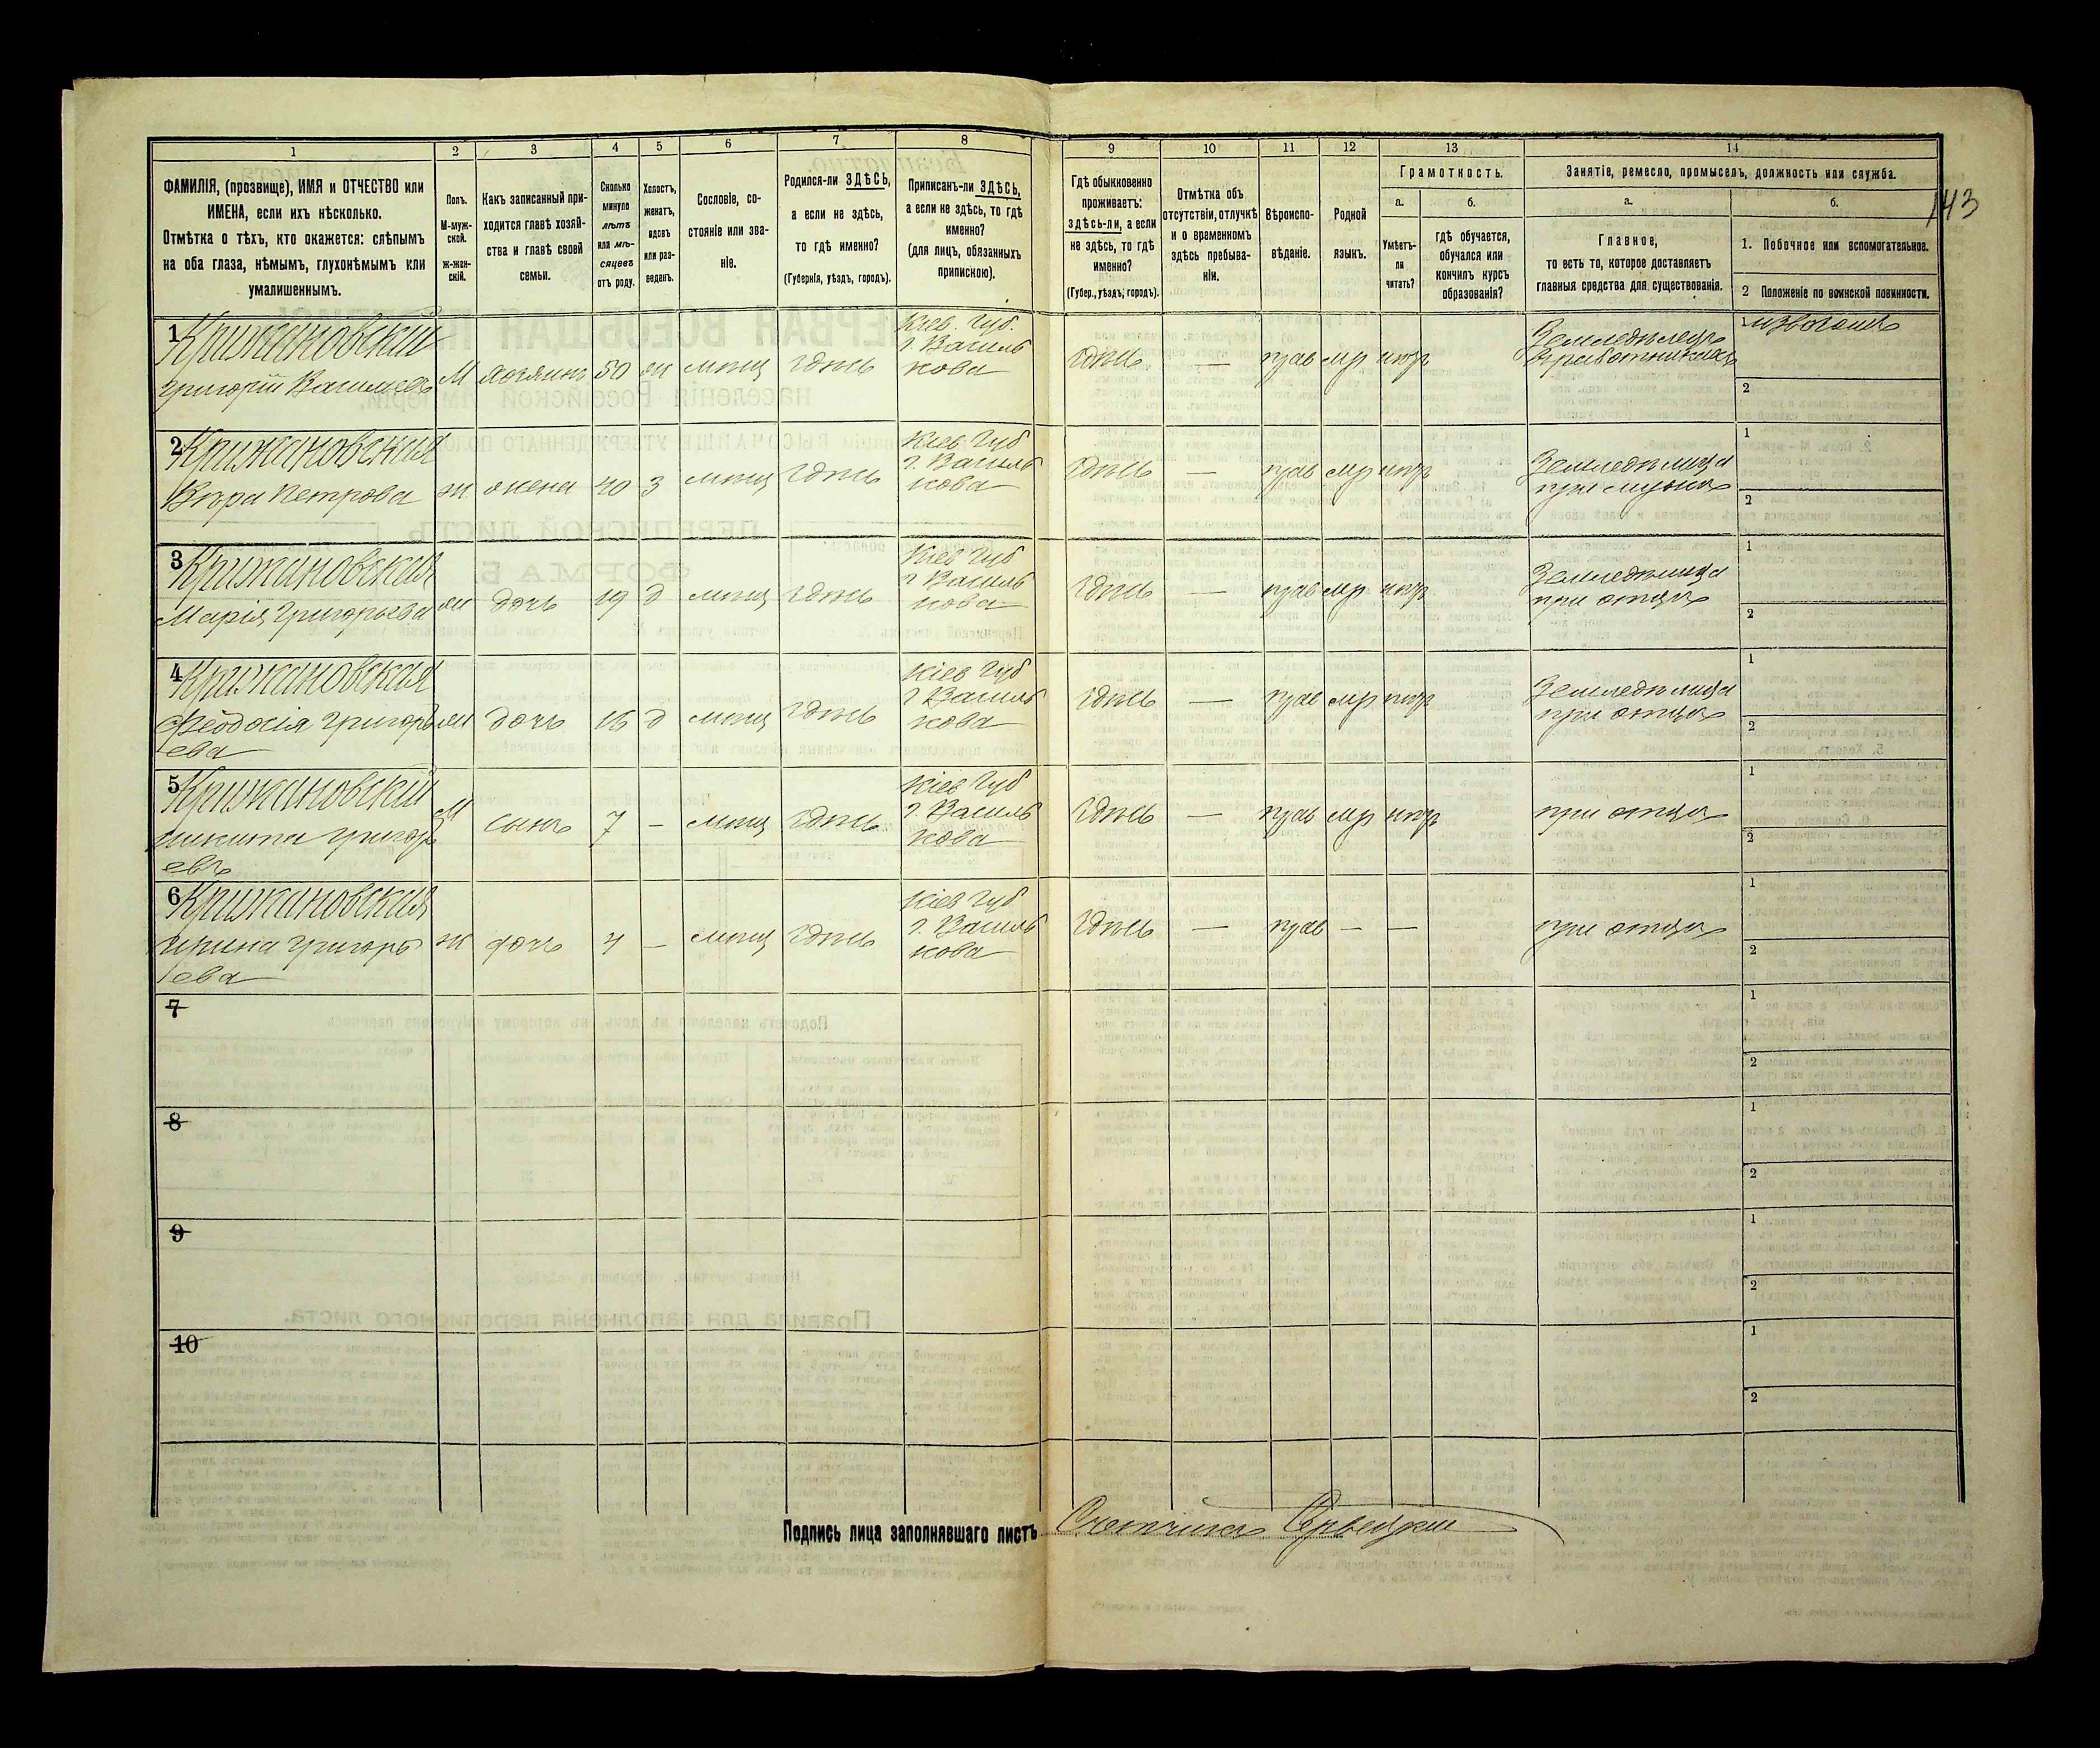 1 2 3 4 5 6 7 8 9 10 11 12 13 14
ФАМИЛІЯ, (прозвище), ИМЯ и ОТЧЕСТВО или
ИМЕНА, если ихъ нѣсколько.
Отмѣтка о тѣхъ, кто окажется: слѣпымъ
на оба глаза, нѣмымъ, глухонѣмымъ или
умалишеннымъ.
Полъ.
М-муж-
ской.
Ж-жен-
скій.
Какъ записанный при-
ходится главѣ хозяй-
ства и главѣ своей
семьи.
Сколько
минуло
лѣтъ
или мѣ-
сяцевъ
отъ роду.
Холостъ,
женатъ,
вдовъ
или раз-
веденъ.
Сословіе, со-
стояніе или зва-
ніе.
Родился-ли ЗДѢСЬ,
а если не здѣсь,
то гдѣ именно?
(Губернія, уѣздъ, городъ).
Приписанъ-ли ЗДѢСЬ,
а если не здѣсь, то гдѣ
именно?
(для лицъ, обязанныхъ
припискою).
Гдѣ обыкновенно
проживаетъ:
здѣсь-ли, а если
не здѣсь, то гдѣ
именно?
(Губер., уѣздъ, городъ).
Отмѣтка объ
отсутствіи, отлучкѣ
и о временномъ
здѣсь пребыва-
ніи.
Вѣроиспо-
вѣданіе.
Родной
языкъ.
Грамотность.
а.
Умѣетъ-
ли
читать?
б.
гдѣ обучается,
обучался или
кончилъ курсъ
образованія?
Занятіе, ремесло, промыселъ, должность или служба.
а.
Главное,
то есть то, которое доставляетъ
главныя средства для существованія.
б.
1. Побочное или вспомогательное.
2 Положеніе по воинской повинности.
143
1 Крижановскій
Григорій Васильевъ М хозяинъ 50 ж мѣщ здѣсь
Кіев. Губ.
г. Василь
кова
здѣсь — прав мр нгр
Земледѣлецъ
1 извозчикъ
2
2 Крижановская
Вѣра Петрова ж жена 40 З мѣщ здѣсь
Кіев Губ
г. Василь
кова
здѣсь — прав мр нгр
Земледѣлица
при мужѣ
1
2
3 Крижановская
Марія Григорьева ж дочь 19 д мѣщ здѣсь
Кіев Губ
г Василь
кова
здѣсь — прав мр нгр
Земледѣлица
при отцѣ
1
2
4 Крижановская
Феодосія Григорь ж дочь 16 д мѣщ здѣсь
ева
Кіев Губ
г Василь
кова
здѣсь — прав мр нгр
Земледѣлица
при отцѣ
1
2
5 Крижановскій
Никита Григорь М сынъ 7 — мѣщ здѣсь
евъ
Кіев Губ
г. Василь
кова
здѣсь — прав мр нгр
при отцѣ
1
2
6 Крижановская
Ирина Григорь ж дочь 4 — мѣщ здѣсь
ева
Кіев Губ
г. Василь
кова
здѣсь — прав — —
при отцѣ
1
2
7
1
2
8
1
2
9
1
2
10
1
2
Подпись лица заполнявшаго листъ Счетчикъ